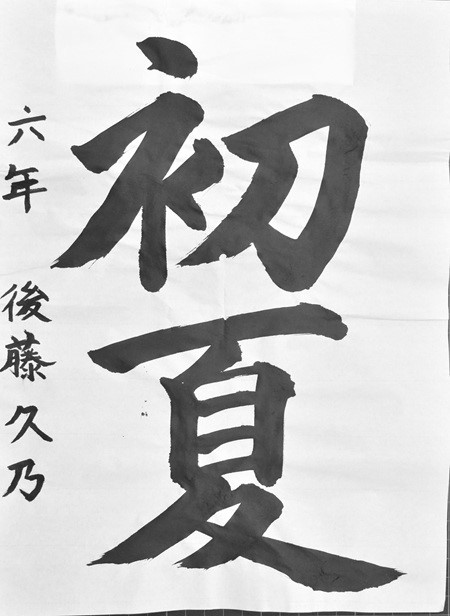 初夏
六年 後藤久乃